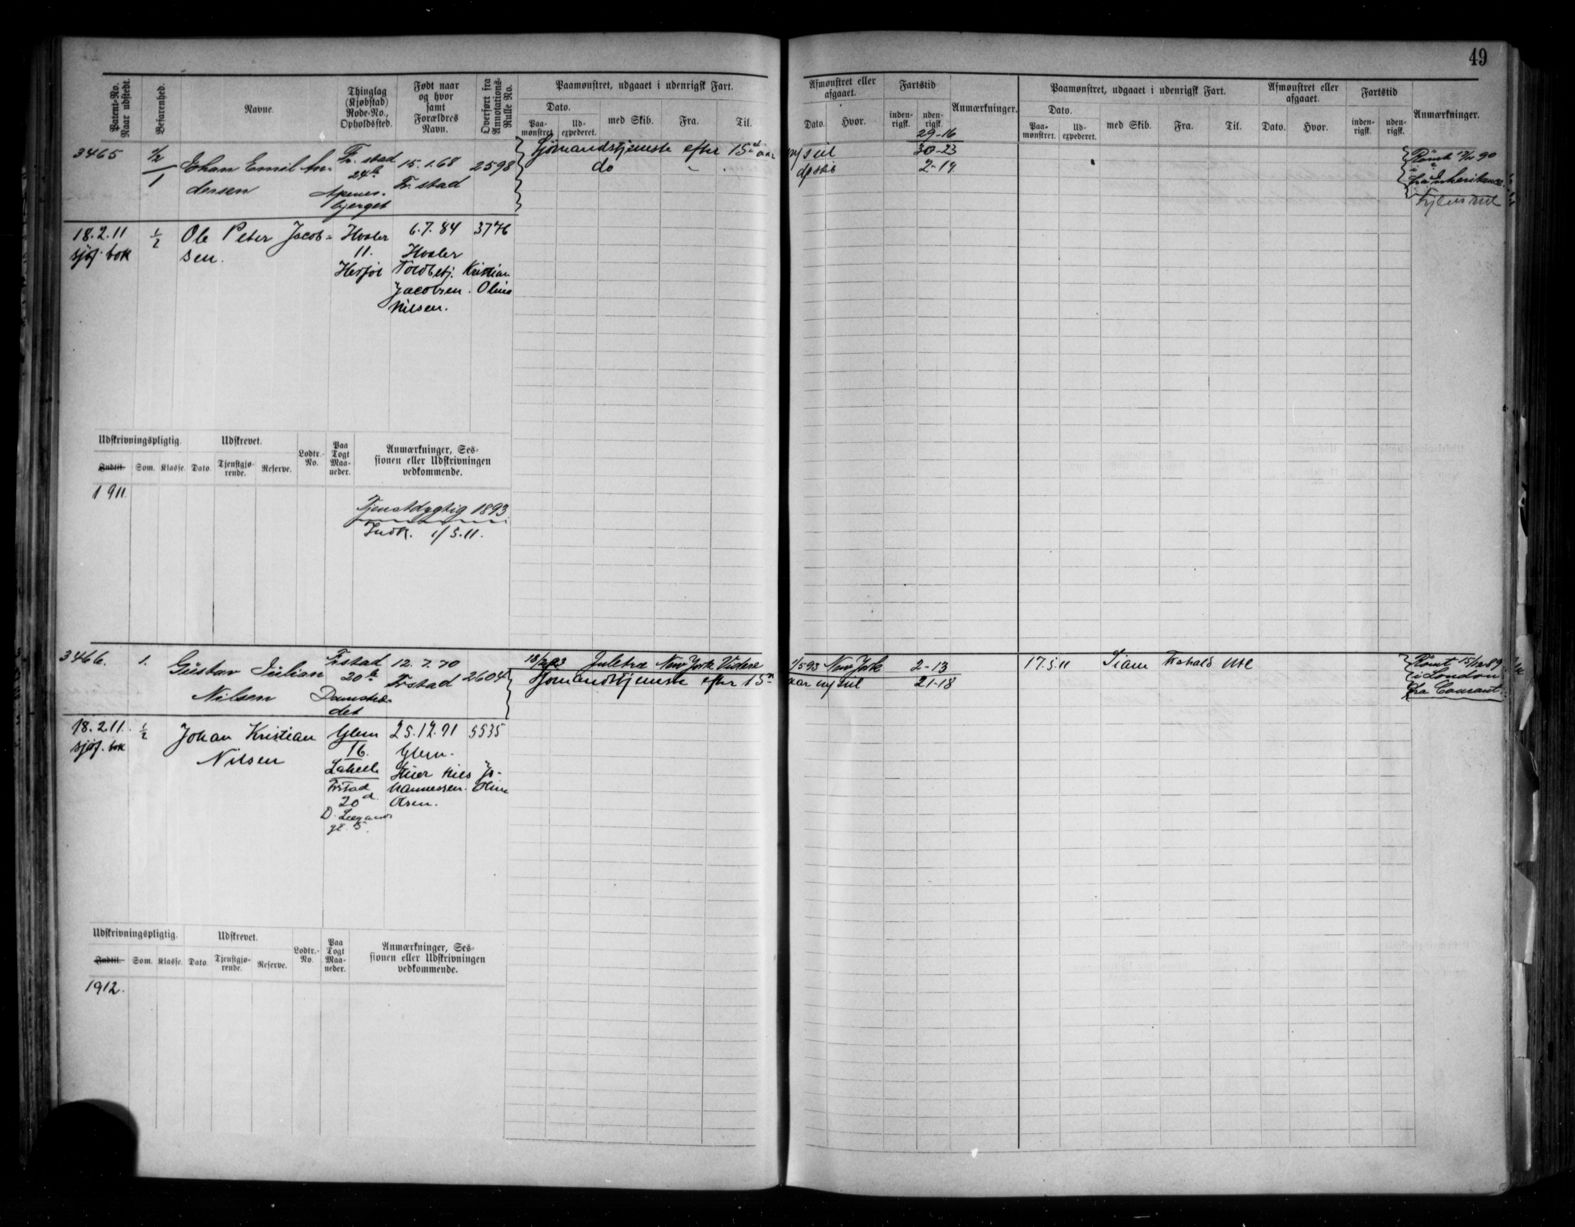 49
Patent-No. Naar udstedt.
Befarenhed.
Navne.
Thinglag (Kjøbstad) Rode-No., Opholdssted.
Født naar og hvor samt Forældres Navn.
Overført fra Annotations-Rulle No.
Paamønstret, udgaaet i udenrigsk Fart.
Dato.
Paa-mønstret.
Ud-expederet.
med Skib.
Fra.
Til.
Afmønstret eller afgaaet.
Dato.
Hvor.
Fartstid
inden-rigsk.
uden-rigsk.
Anmærkninger.
Paamønstret, udgaaet i udenrigsk Fart.
Dato.
Paa-mønstret.
Ud-expederet.
med Skib.
Fra.
Til.
Afmønstret eller afgaaet.
Dato.
Hvor.
Fartstid
inden-rigsk.
uden-rigsk.
Anmærkninger.
29-16
3465
1
Emil An-
dersen
Fr. stad
24de
bjerget
15.1.68
Fr. stad
2598
Sjömandstjeneste efter 15de aar
do
30-23
2-19
18.2.11
sjøf. bok
1/2
Ole Peter Jacob-
sen.
Hvaler
11.
Herføl
6.7.84
Hvaler
Toldbetj. Kristian
Jacobsen. Olina
Nilsen.
3746
Udskrivningspligtig.
Udskrevet.
Lodtr.-No.
Paa Togt Maa-neder.
Anmærkninger, Ses-
sionen eller Udskrivningen
vedkommende.
Indtil.
Som.
Klasse.
Dato.
Tjenstgjø-rende.
Reserve.
1911
Tjenstdygtig 1893
Indk. 1/5.11.
3466.
1.
Gustav Julian
Nilsen
Fr.stad
20de
12.7.70
Fr.stad
2604
Juletræ New York
Sjømandstjeneste efter 15de
aar
1/5 93 New York
2-13
21-18
17.5.11
Siam
London
18.2.11.
sjøf. bok
1/2
Johan Kristian
Nilsen
Glem
16.
Frstad
20d
25.12.91
Glem.
Nils Jo-
hannessen. Oline
Olsen.
5535
Udskrivningspligtig.
Udskrevet.
Lodtr.-No.
Paa Togt Maa-neder.
Anmærkninger, Ses-
sionen eller Udskrivningen
vedkommende.
Indtil.
Som.
Klasse.
Dato.
Tjenstgjø-rende.
Reserve.
1912.